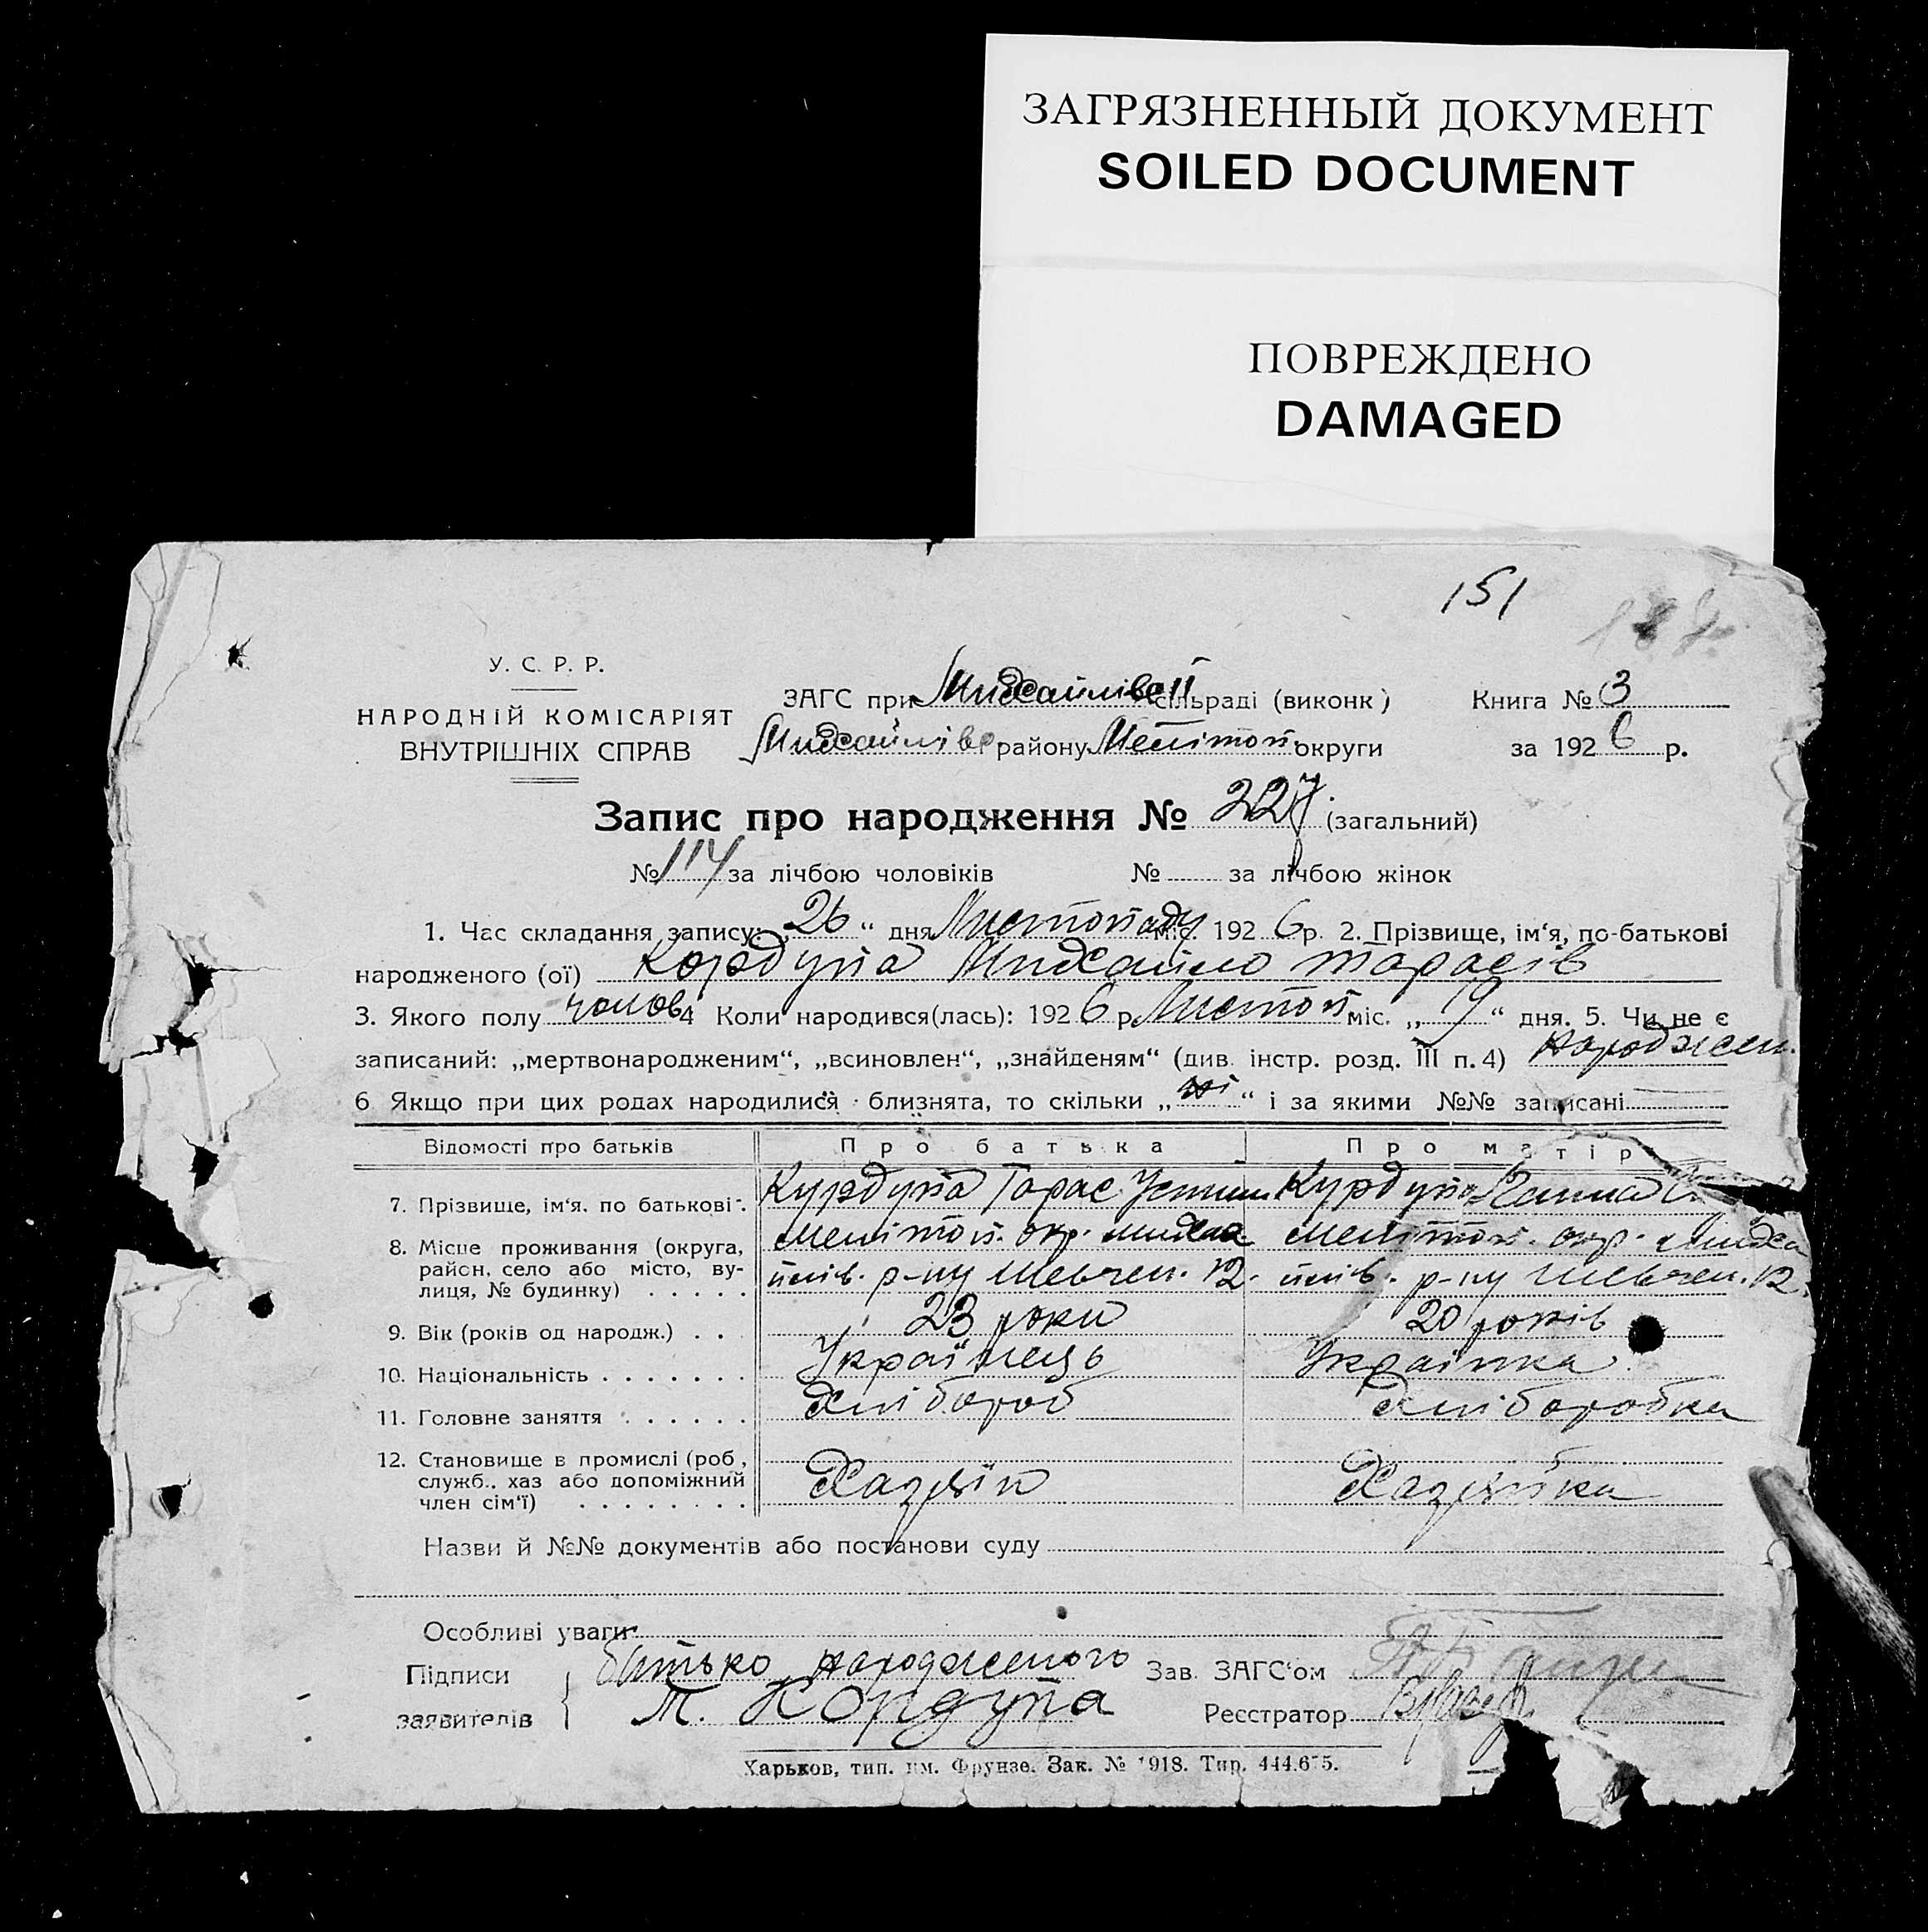 ЗАГРЯЗНЕННЫЙ ДОКУМЕНТ
SOILED DOCUMENT
ПОВРЕЖДЕНО
DAMAGED
151
У. С. Р. Р.
НАРОДНІЙ КОМІСАРІЯТ
ВНУТРІШНІХ СПРАВ
ЗАГС при Михайлівсіі сільраді (виконк) Книга № 3
Михайлівс району Мелітоп. округи за 1926 р.
Запис про народження № 227 (загальний)
№ 114 за лічбою чоловіків № за лічбою жінок
1. Час складання запису: „26“ дня Листопаду міс. 1926 р. 2. Прізвище, ім‘я, по-батькові
народженого (ої) Кордупа Михайло Тарасів
3. Якого полу чолов. 4 Коли народився(лась): 1926 р. Листоп міс. „ “ дня. 5. Чи не є
записаний: „мертвонародженим“, „всиновлен“, „знайденям“ (див. інстр. розд. III п. 4) народжен.
6 Якщо при цих родах народилися близнята, то скільки „ні“ і за якими №№ записані
Відомості про батьків Про батька Про матір
7. Прізвище, ім‘я. по батькові. Курдупа Тарас Устим. Курдупа Ганна
8. Місце проживання (округа, район, село або місто, вулиця, № будинку) Мелітоп. окр. Михайлів. р-ну Шевчен. 12. Мелітоп. окр. Михайлів. р-ну Шевчен. 12.
9. Вік (років од народж.) 23 роки 20 років
10. Національність Українець Українка
11. Головне заняття Хлібороб Хліборобка
12. Становище в промислі (роб, служб., хаз або допоміжний член сім‘ї) Хазяїн Хазяйка
Назви й №№ документів або постанови суду
Особливі уваги
Підписи заявителів Батько народженого Зав. ЗАГС‘ом
М. Кордупа Реєстратор
Харьков, тип. им. Фрунзе. Зак. № 1918. Тир. 444.675.